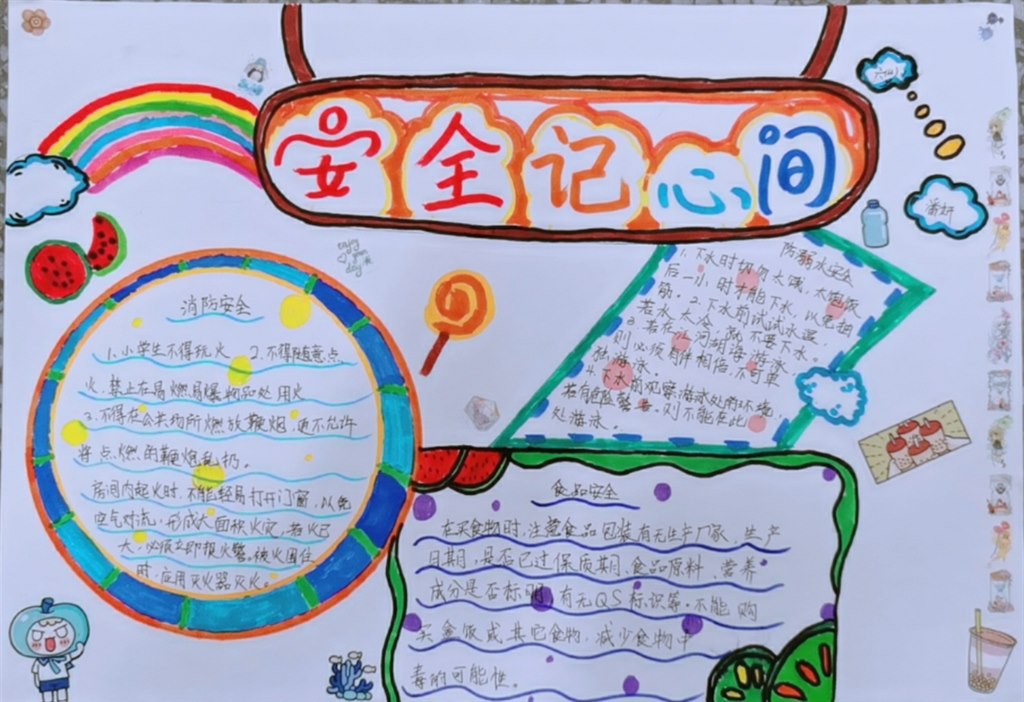 安全记心间
六(4)
潘妍
enjoy
your
day
消防安全
1.小学生不得玩火 2.不得随意点
火.禁止在易燃易爆物品处用火
3.不得在公共场所燃放鞭炮,更不允许
将点燃的鞭炮乱扔。
房间内起火时,不能轻易打开门窗,以免
空气对流,形成大面积火灾,若火已
大,必须立即报火警。被火围住
时,应用灭火器灭火。
防溺水安全
1.下水时切勿太饿,太饱饭
后一小时才能下水,以免抽
筋。2.下水前试试水温
若水太冷,就不要下水。
3.若在江河湖海游泳
则必须有伴相陪,不可单
独游泳。
4.下水前观察游泳处的环境,
若有危险警告,则不能在此
处游泳。
食品安全
在买食物时,注意食品包装有无生产厂家、生产
日期,是否已过保质期、食品原料、营养
成分是否标明,有无QS标识等.不能购
买盒饭或其它食物,减少食物中
毒的可能性。